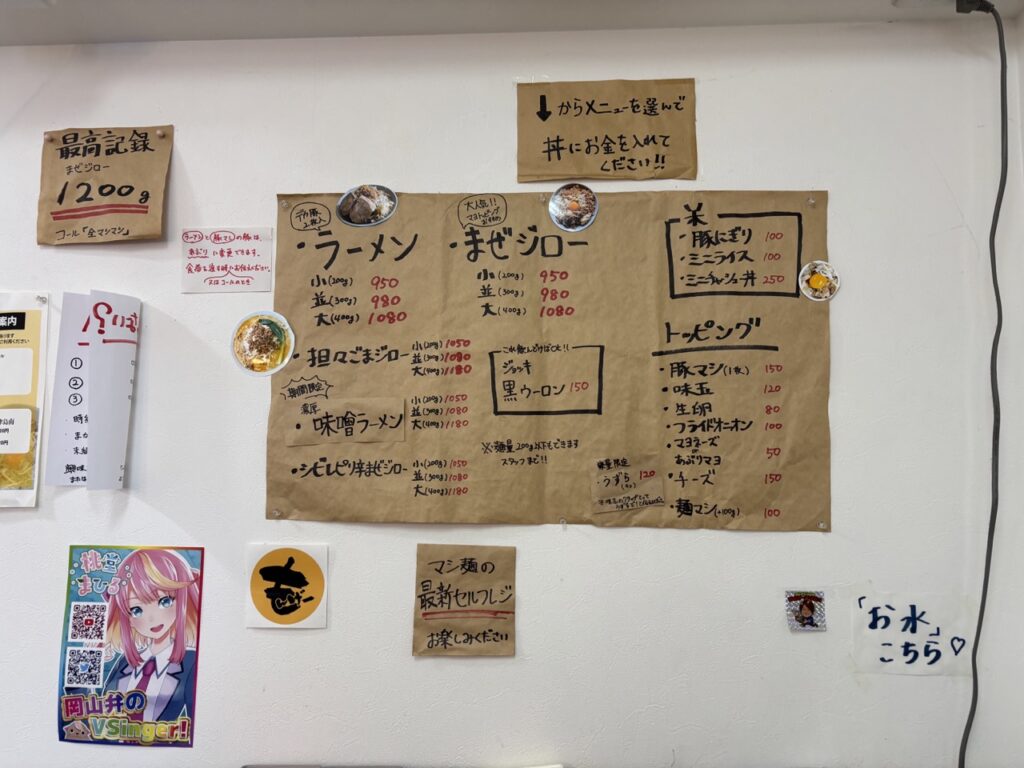 ↓からメニューを選んで
丼にお金を入れて
ください!!
最高記録
まぜジロー
1200g
コール「全マシマシ」
ラーメンと豚マシの豚は、
あぶりに変更できます。
食券を渡す時にお伝えください。
又はコールのとき
デカ豚
2枚入
・ラーメン
小(200g) 950
並(300g) 980
大(400g) 1080
・担々ごまジロー
小(200g) 1050
並(300g) 1080
大(400g) 1180
期間限定
濃厚
・味噌ラーメン
小(200g) 1050
並(300g) 1080
大(400g) 1180
・シビレピリ辛まぜジロー
小(200g) 1050
並(300g) 1080
大(400g) 1180
大人気!!
マヨトッピング
おすすめ
・まぜジロー
小(200g) 950
並(300g) 980
大(400g) 1080
これ飲んどけばOK!!
ジョッキ
黒ウーロン 150
※麺量200g以下もできます
スタッフまで!!
数量限定
・うずら 120
米
・豚にぎり 100
・ミニライス 100
・ミニチャーシュー丼 250
トッピング
・豚マシ(1枚) 150
・味玉 120
・生卵 80
・フライドオニオン 100
・マヨネーズ
or
あぶりマヨ 50
・チーズ 150
・麺マシ(+100g) 100
案内
①
②
③
桃堂
まひる
岡山弁の
VSinger!
マシ麺の
最新セルフレジ
お楽しみください
「お水」
こちら♡